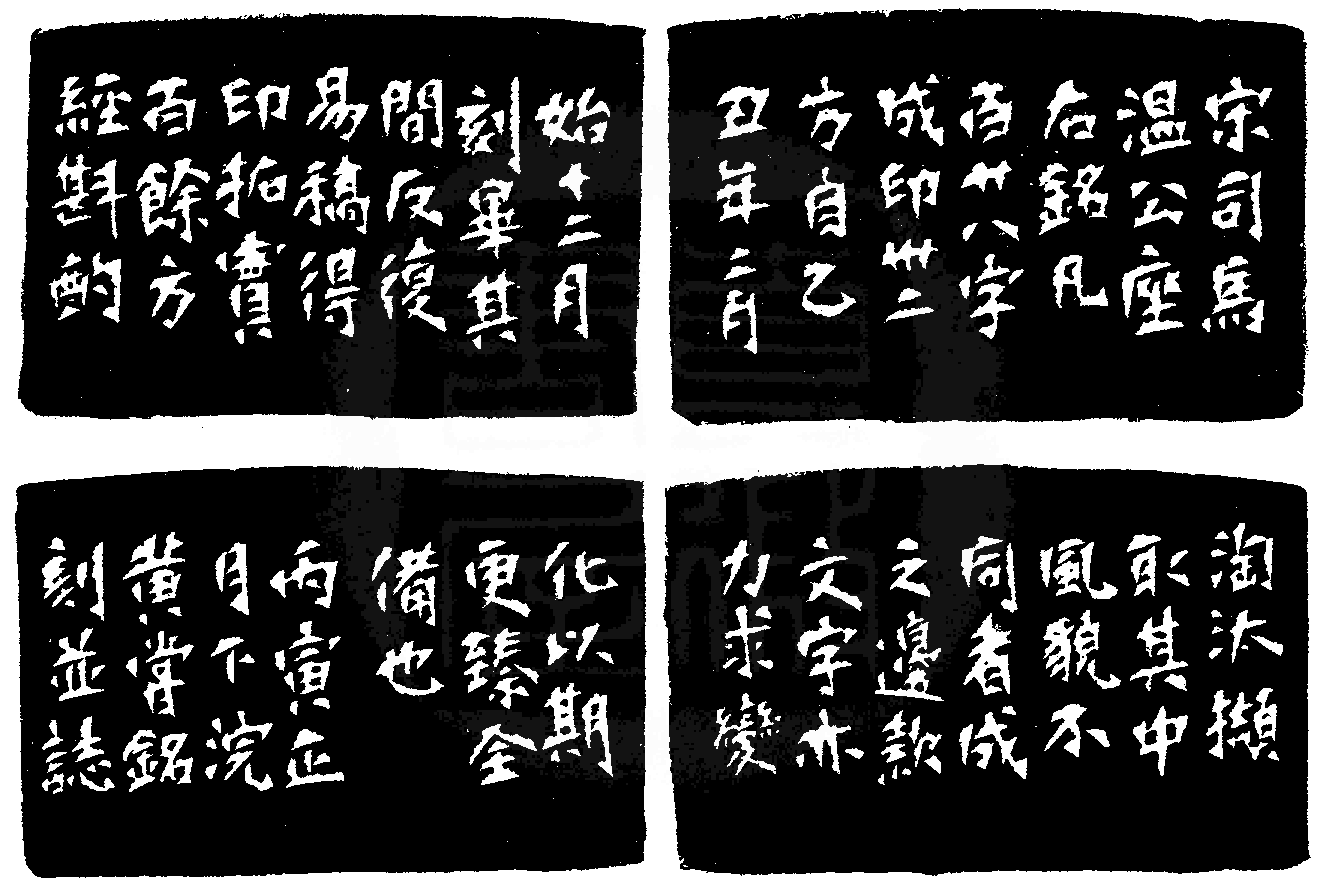 宋司馬
温公座
右銘凡
百廿八字
成印卅二
方自乙
丑年二月
始十二月
刻畢其
間反復
易稿得
印拓實
百餘方
經斟酌
淘汰擷
取其中
風貌不
同者成
之邊款
文字亦
力求變
化以期
更臻全
備也
丙寅正
月下浣
黄嘗銘
刻並誌